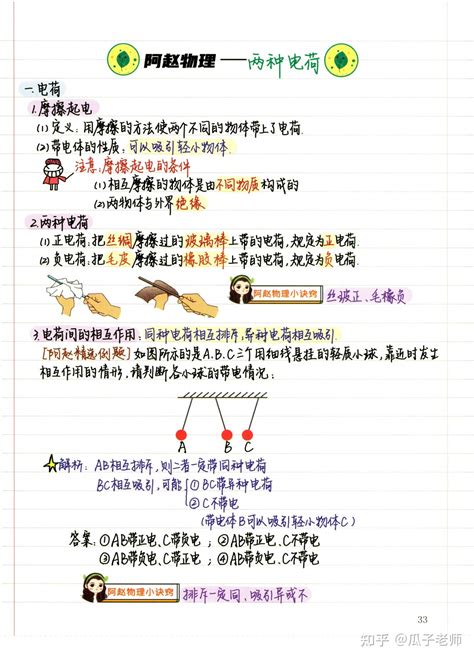 阿赵物理——两种电荷
一.电荷
1.摩擦起电
(1)定义:用摩擦的方法使两个不同的物体带上了电荷.
(2)带电体的性质:可以吸引轻小物体.
注意:摩擦起电的条件
(1)相互摩擦的物体是由不同物质构成的
(2)两物体与外界绝缘
2.两种电荷
(1)正电荷:把丝绸摩擦过的玻璃棒上带的电荷,规定为正电荷.
(2)负电荷:把毛皮摩擦过的橡胶棒上带的电荷,规定为负电荷.
阿赵物理小诀窍 丝玻正、毛橡负
3.电荷间的相互作用:同种电荷相互排斥,异种电荷相互吸引.
[阿赵精选例题]如图所示的是A.B.C三个用细线悬挂的轻质小球,靠近时发生
相互作用的情形,请判断各小球的带电情况:
A B C
解析:AB相互排斥,则二者一定带同种电荷
BC相互吸引,可能{①BC带异种电荷
②C不带电
(带电体B可以吸引轻小物体C)
答案:①AB带正电、C带负电;②AB带正电、C不带电
③AB带负电、C带正电;④AB带负电、C不带电
阿赵物理小诀窍 排斥一定同、吸引异或不
33
知乎 @瓜子老师